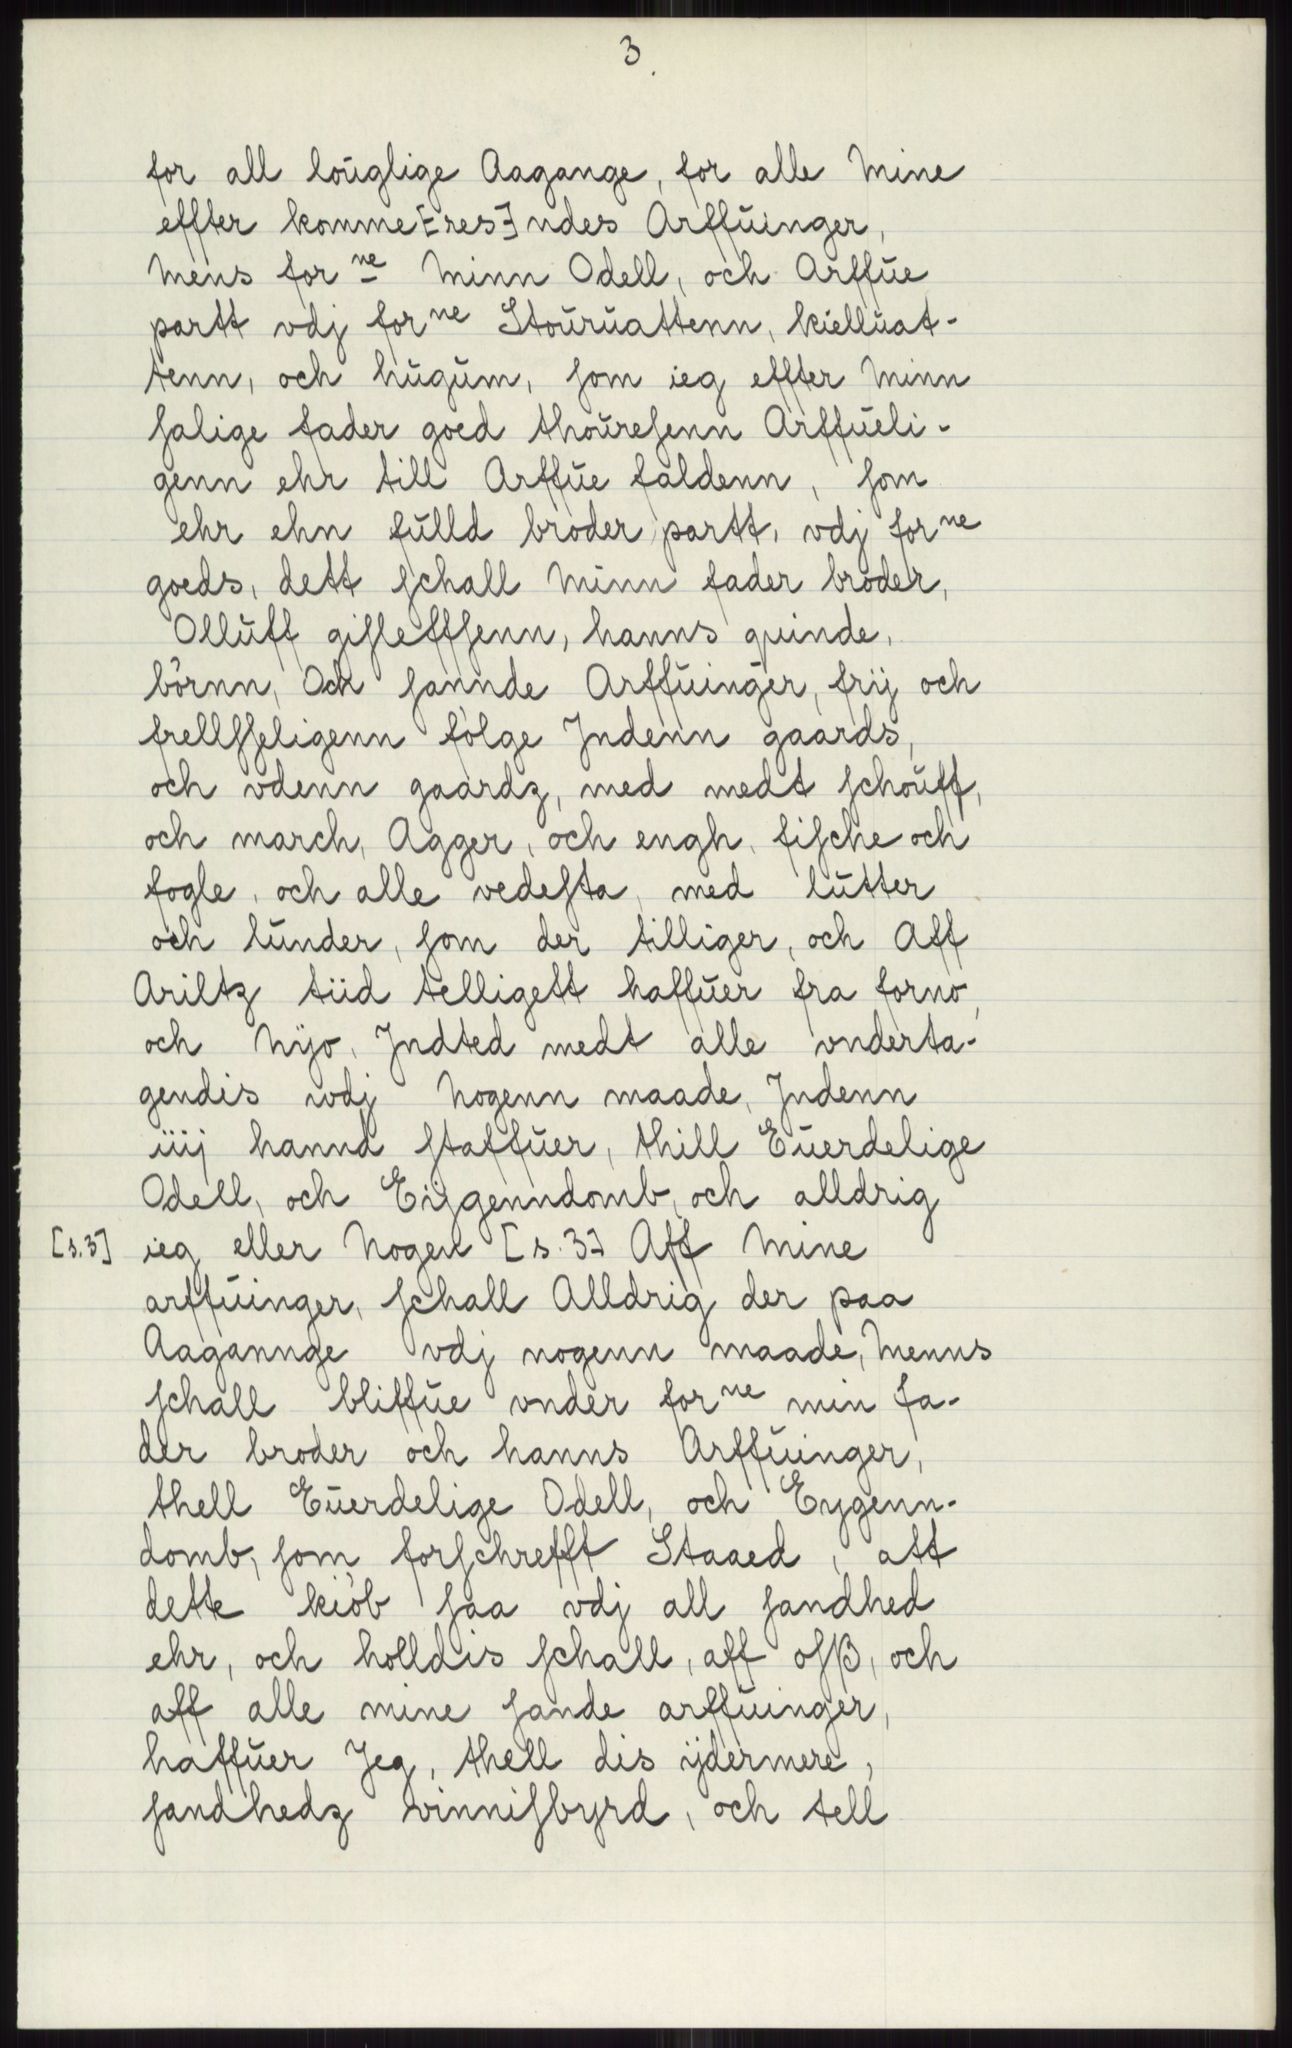 3.
for all louglige Aagange, for alle Mine
effter komme[res]ndes Arffuinger,
Mens for ne Minn Odell, och Arffue
partt vdj for ne Stouruattenn, kielluat-
tenn, och hugum, som ieg effter Minn
salige fader goed thouresenn Arffueli-
genn ehr till Arffue faldenn, som
ehr ehn fulld broder partt, vdj for ne
goeds, dett schall Minn fader broder,
Olluff gisleffsenn, hanns quinde,
börnn, Och sannde Arffuinger, frij och
frellsseligenn fölge Jndenn gaards,
och vdenn gaardz, med medt schouff,
och march, Agger, och engh, fische och
fogle, och alle vedesta, med lutter
och lunder, som der tilliger, och Aff
Ariltz tiid telligett haffuer fra forno,
och Nyo, Jndted medt alle vnderta-
gendis wdj Nogenn maade, Jndenn
iiij hannd staffuer, thill Euerdelige
Odell, och Eijgenndomb, och alldrig
[s.3] ieg eller Nogen [s.3] Aff Mine
arffuinger, schall Alldrig der paa
Aagannge vdj nogenn maade, Menns
schall bliffue vnder for ne min fa-
der broder och hanns Arffuinger,
thell Euerdelige Odell, och Eygenn-
domb, som forschrefft Staaed, att
dette kiöb saa vdj all sandhed
ehr, och holldis schall, aff osß, och
aff alle mine sande arffuinger,
haffuer Jeg, thell dis ijdermere,
sandhedz vinnisbyrd, och tell